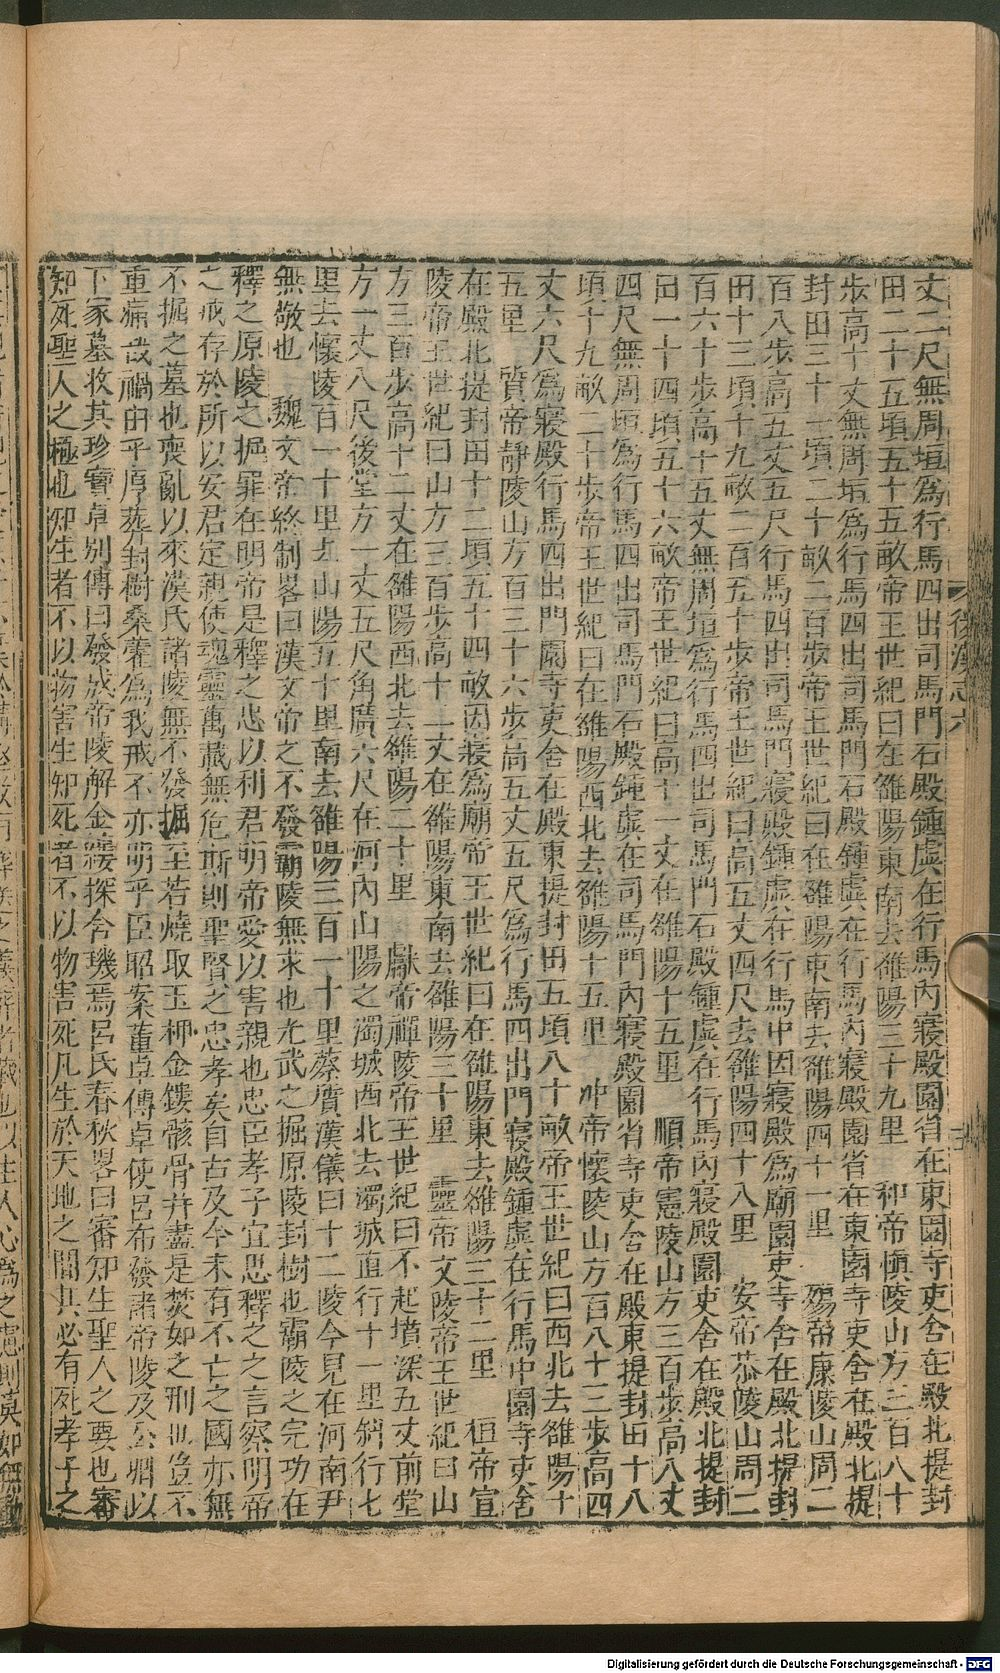 丈二尺無周垣爲行馬四出司馬門石殿鍾虡在行馬內寢殿園省在東園寺吏舍在殿北提封
田二十五頃五十五畝帝王世紀曰在雒陽東南去雒陽三十九里　和帝慎陵山方三百八十
步高十丈無周垣爲行馬四出司馬門石殿鍾虡在行馬內寢殿園省在東園寺吏舍在殿北提
封田三十一頃二十畝二百步帝王世紀曰在雒陽東南去雒陽四十一里　殤帝康陵山周二
百八步高五丈五尺行馬四出司馬門寢殿鍾虡在行馬中因寢殿爲廟園吏寺舍在殿北提封
田十三頃十九畝二百五十步帝王世紀曰高五丈四尺去雒陽四十八里　安帝恭陵山周二
百六十步高十五丈無周垣爲行馬四出司馬門石殿鍾虡在行馬內寢殿園吏舍在殿北提封
田一十四頃五十六畝帝王世紀曰高十一丈在雒陽十五里　順帝憲陵山方三百步高八丈
四尺無周垣爲行馬四出司馬門石殿鍾虡在司馬門內寢殿園省寺吏舍在殿東提封田十八
頃十九畝二十步帝王世紀曰在雒陽西北去雒陽十五里　冲帝懷陵山方百八十三步高四
丈六尺爲寢殿行馬四出門園寺吏舍在殿東提封田五頃八十畝帝王世紀曰西北去雒陽十
五里　質帝靜陵山方百三十六步高五丈五尺爲行馬四出門寢殿鍾虡在行馬中園寺吏舍
在殿北提封田十二頃五十四畝因寢爲廟帝王世紀曰在雒陽東去雒陽三十二里　桓帝宣
陵帝王世紀曰山方三百步高十一丈在雒陽東南去雒陽三十里　靈帝文陵帝王世紀曰山
方三百步高十二丈在雒陽西北去雒陽二十里　獻帝禪陵帝王世紀曰不起墳深五丈前堂
方一丈八尺後堂方一丈五尺角廣六尺在河內山陽之濁城西北去濁城直行十一里斜行七
里去懷陵百一十里去山陽五十里南去雒陽三百一十里蔡質漢儀曰十二陵令見在河南尹
無敬也　魏文帝終制畧曰漢文帝之不發霸陵無求也光武之掘原陵封樹也霸陵之完功在
釋之原陵之掘罪在明帝是釋之忠以利君明帝愛以害親也忠臣孝子宜思釋之之言察明帝
之戒存於所以安君定親使魂靈萬載無危斯則聖賢之忠孝矣自古及今未有不亡之國亦無
不掘之墓也喪亂以來漢氏諸陵無不發掘至若燒取玉柙金鏤骸骨并盡是焚如之刑也豈不
重痛哉禍由乎厚葬封樹桑霍爲我戒不亦明乎臣昭案董卓傳卓使呂布發諸帝陵及公卿以
下冢墓收其珍寶卓別傳曰發成帝陵解金縷探含璣焉呂氏春秋畧曰審知生聖人之要也審
知死聖人之極也知生者不以物害生知死者不以物害死凡生於天地之間其必有死孝子之
後漢志六